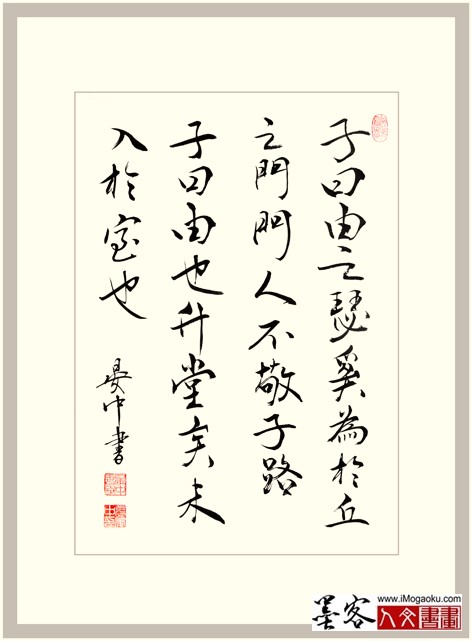 子曰由之瑟奚為於丘
之門門人不敬子路
子曰由也升堂矣未
入於室也
晏中書
www.iMogaoku.com
墨客
人文書畫